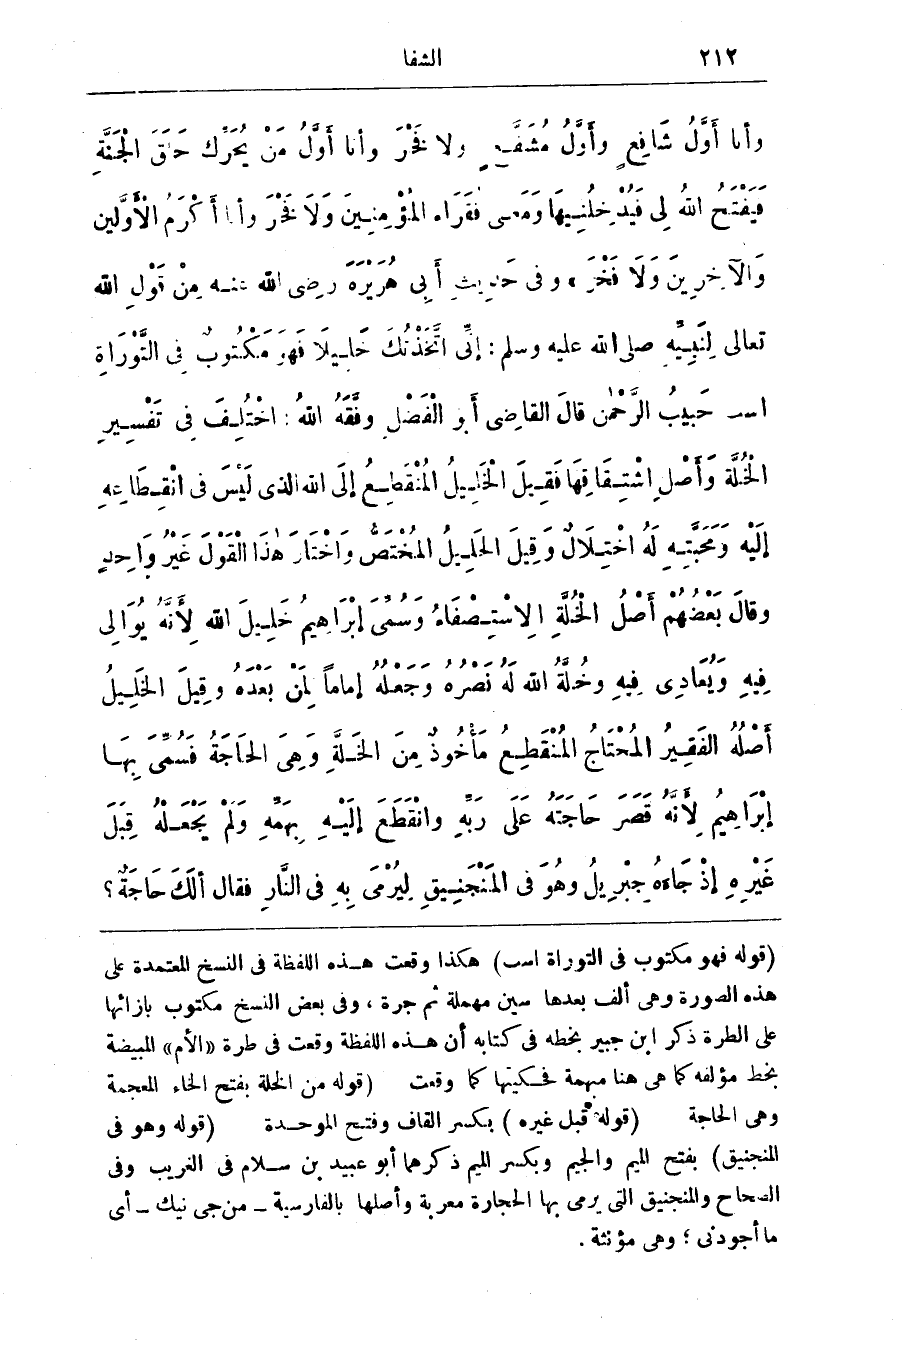 ٢١٢ الشفا
وأنا أَوَّلُ شَافِعٍ وأَوَّلُ مُشَفَّعٍ ولا فَخْرَ وأنا أَوَّلُ مَنْ يُحَرِّكُ حَلَقَ الْجَنَّةِ
فَيَفْتَحُ اللهُ لِى فَيُدْخِلُنِيهَا وَمَعِى فُقَرَاءُ الْمُؤْمِنِينَ وَلَا فَخْرَ وأنا أَكْرَمُ الْأَوَّلين
وَالآخِرِينَ وَلَا فَخْرَ ، وفى حَدِيثِ أَبِى هُرَيْرَةَ رضى الله عنه مِنْ قَوْلِ الله
تعالى لِنَبِيِّهِ صلى الله عليه وسلم : إِنِّى اتَّخَذْتُكَ خَلِيلًا فَهُوَ مَكْتُوبٌ فى التَّوْرَاةِ
اسـ حَبِيبُ الرَّحْمٰنِ قالَ القاضِى أَبو الْفَضْلِ وفَّقَهُ اللهُ : اخْتُلِفَ فى تَفْسِيرِ
الْخُلَّةِ وَأَصْلِ اشْتِقَاقِهَا فَقِيلَ الْخَلِيلُ الْمُنْقَطِعُ إِلَى الله الذى لَيْسَ فى انْقِطَاعِهِ
إِلَيْهِ وَمَحَبَّتِهِ لَهُ اخْتِلَالٌ وَقِيلَ الخَلِيلُ المُخْتَصُّ وَاخْتَارَ هٰذَا الْقَوْلَ غَيْرُ وَاحِدٍ
وقالَ بَعْضُهُمْ أَصْلُ الْخُلَّةِ الِاسْتِصْفَاءُ وَسُمِّىَ إِبْرَاهِيمُ خَلِيلَ الله لِأَنَّهُ يُوَالِى
فِيهِ وَيُعَادِى فِيهِ وخُلَّةُ الله لَهُ نَصْرُهُ وَجَعْلُهُ إماماً لِمَنْ بَعْدَهُ وقِيلَ الخَلِيلُ
أَصْلُهُ الفَقِيرُ المُحْتَاجُ الْمُنْقَطِعُ مَأْخُوذٌ مِنَ الخَلَّةِ وَهِىَ الحَاجَةُ فَسُمِّىَ بِهَا
إِبْرَاهِيمُ لِأَنَّهُ قَصَرَ حَاجَتَهُ عَلَى رَبِّهِ وانْقَطَعَ إِلَيْهِ بِهَمِّهِ وَلَمْ يَجْعَلْهُ قِبَلَ
غَيْرِهِ إِذْ جَاءَهُ جِبْرِيلُ وهُوَ فى المَنْجَنِيقِ لِيُرْمَى بِهِ فى النَّارِ فقال أَلَكَ حَاجَةٌ ؟
(قوله فهو مكتوب فى التوراة اسـ) هكذا وقعت هذه اللفظة فى النسخ المعتمدة على
هذه الصورة وهى ألف بعدها سين مهملة ثم جرة ، وفى بعض النسخ مكتوب بازائها
على الطرة ذكر ابن جبير بخطه فى كتابه أن هذه اللفظة وقعت فى طرة «الأم» المبيضة
بخط مؤلفه كما هى هنا مبهمة فحكيتها كما وقعت (قوله من الخلة بفتح الخاء المعجمة
وهى الحاجة (قوله قبل غيره) بكسر القاف وفتح الموحدة (قوله وهو فى
المنجنيق) بفتح الميم والجيم وبكسر الميم ذكرهما أبو عبيد بن سلام فى الغريب وفى
الصحاح والمنجنيق التى يرمى بها الحجارة معربة وأصلها بالفارسية ـ من جى نيك ـ أى
ما أجودنى ؛ وهى مؤنثة .